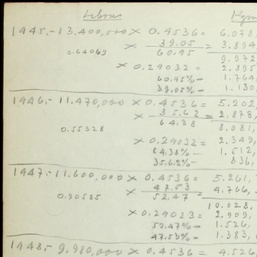 Libras Kgm
1945.- 13,400,000 × 0.4536 = 6.078,
0.64069 × 39.05 = 3.894
60.95 9.972
× 0.29032 = 2.895
60.95% = 1.764,
39.05% = 1.130
1946.- 11,470,000 × 0.4536 = 5.202,
× 35.62 = 2,878,
0.55328 64.38 8,081,
× 0.29032 = 2,349,
64.38% = 1,512,
35.62% = 836,
1947.- 11.600,000 × 0.4536 = 5.261,
0.90585 × 47.53 = 4,766,
52.47 10.028,
× 0.29032 = 2,909,
52.47% = 1,526,
47.53% = 1,383,
1948.- 9,980,000 × 0.4536 = 4.526